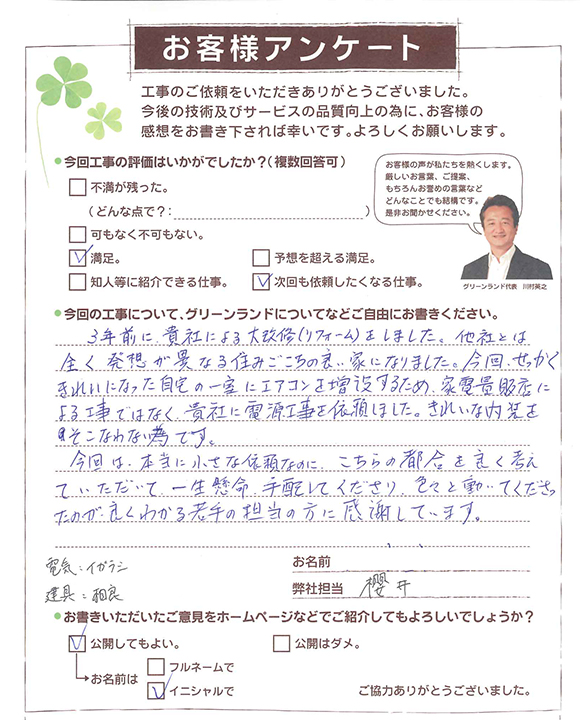 お客様アンケート
工事のご依頼をいただきありがとうございました。
今後の技術及びサービスの品質向上の為に、お客様の
感想をお書き下されば幸いです。よろしくお願いします。
●今回工事の評価はいかがでしたか?(複数回答可)
不満が残った。
(どんな点で?:　)
可もなく不可もない。
満足。
予想を超える満足。
知人等に紹介できる仕事。
次回も依頼したくなる仕事。
お客様の声が私たちを熱くします。
厳しいお言葉、ご提案、
もちろんお誉めの言葉など
どんなことでも結構です。
是非お聞かせください。
グリーンランド代表　川村英之
●今回の工事について、グリーンランドについてなどご自由にお書きください。
3年前に、貴社による大改修(リフォーム)をしました。他社とは
全く発想が異なる住みごこちの良い家になりました。今回、せっかく
きれいになった自宅の一室にエアコンを増設するため、家電量販店に
よる工事ではなく、貴社に電源工事を依頼しました。きれいな内装を
そこなわない為です。
今回は、本当に小さな依頼なのに、こちらの都合を良く考え
ていただいて、一生懸命、手配してくださり、色々と動いてくださっ
たのが、良くわかる若手の担当の方に感謝しています。
電気:イガラシ
建具:相良
お名前
弊社担当　櫻井
●お書きいただいたご意見をホームページなどでご紹介してもよろしいでしょうか?
公開してもよい。
公開はダメ。
お名前は
フルネームで
イニシャルで
ご協力ありがとうございました。